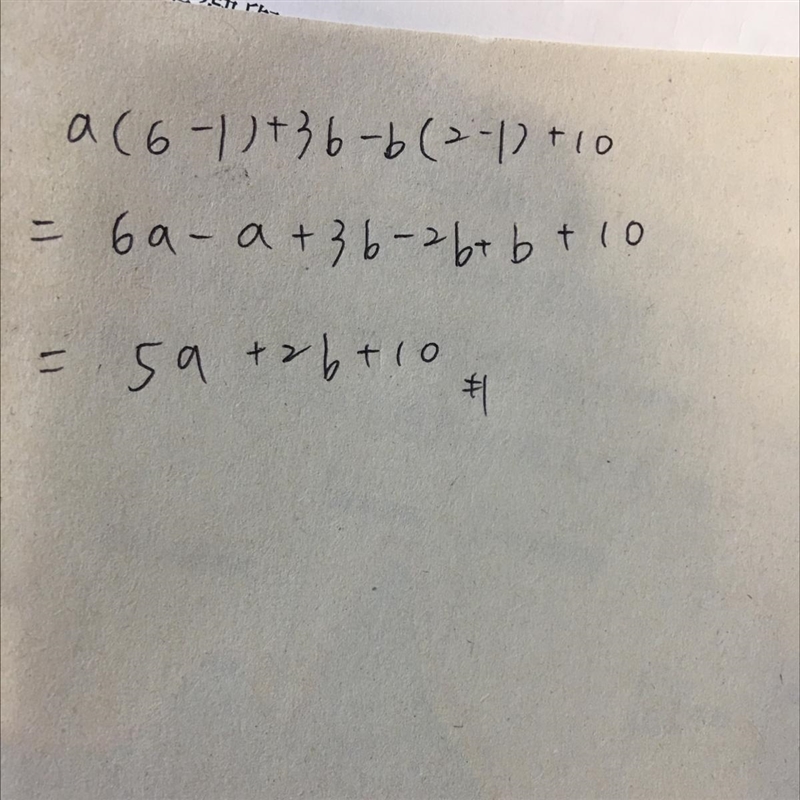 a(6-1)+3b-b(2-1)+10
= 6a-a+3b-2b+b+10
= 5a+2b+10 #